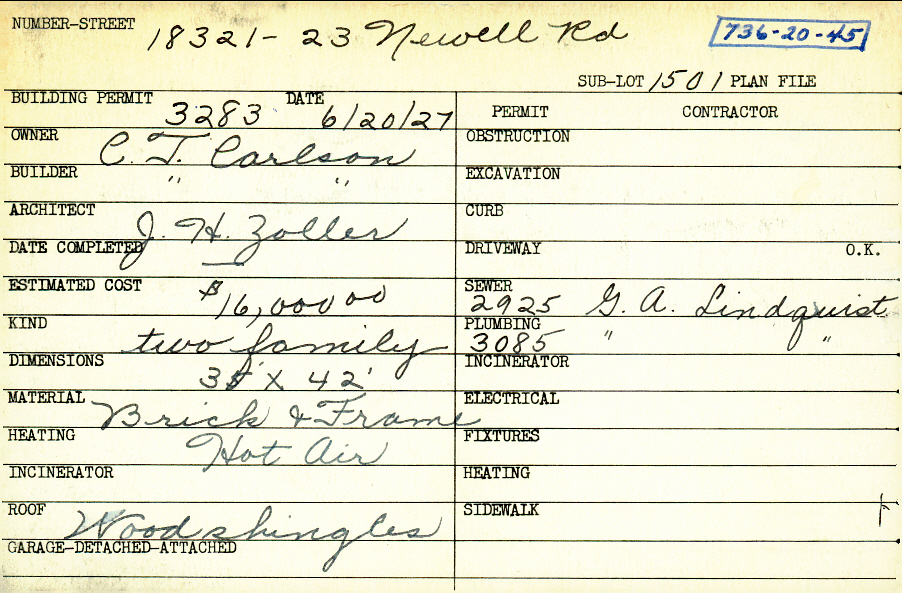 NUMBER-STREET 18321-23 Newell Rd 736-20-45
SUB-LOT 1501 PLAN FILE
BUILDING PERMIT 3283 DATE 6/20/27
OWNER C. T. Carlson
BUILDER " "
ARCHITECT J. H. Zoller
DATE COMPLETED —
ESTIMATED COST $16,000 00
KIND two family
DIMENSIONS X 42'
MATERIAL Brick & Frame
HEATING Hot Air
INCINERATOR
ROOF Wood shingles
GARAGE-DETACHED-ATTACHED
PERMIT CONTRACTOR
OBSTRUCTION
EXCAVATION
CURB
DRIVEWAY O.K.
SEWER 2925 G. A. Lindquist
PLUMBING 3085 " "
INCINERATOR
ELECTRICAL
FIXTURES
HEATING
SIDEWALK